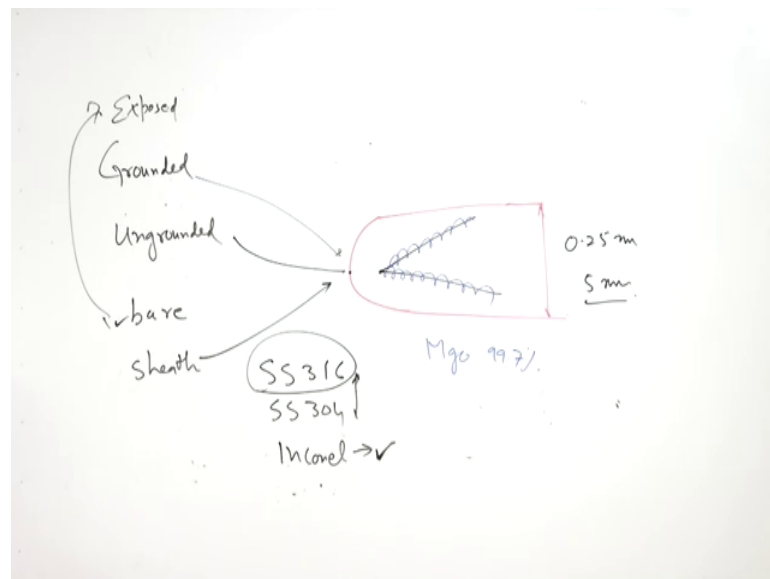 Exposed
Grounded
Ungrounded
bare
Sheath
SS316
SS304
Inconel → ✓
0.25 mm
5 mm
Mgo 99%